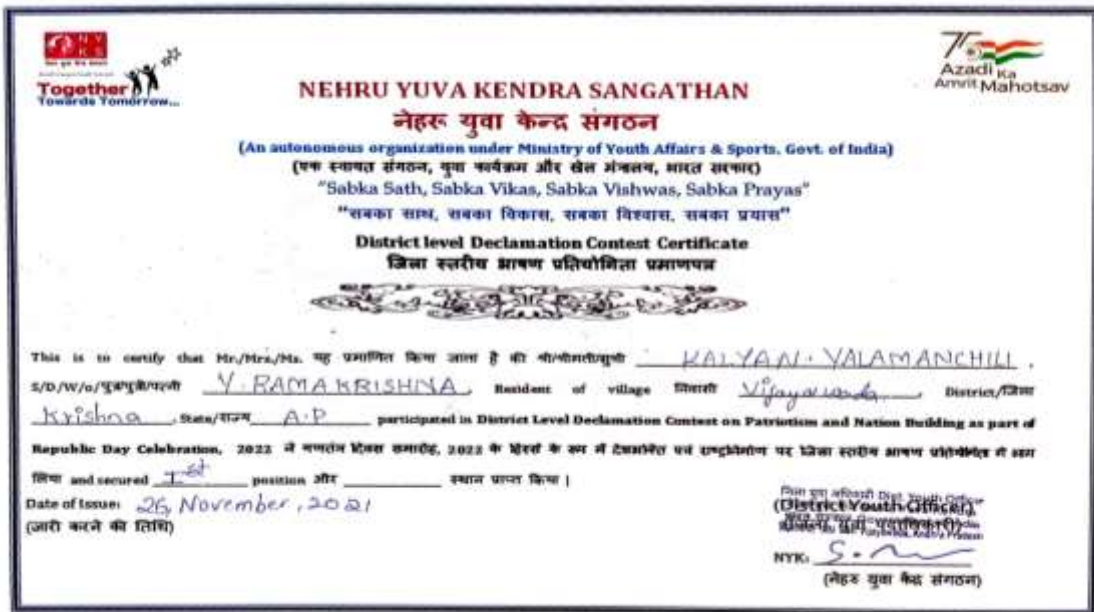 Together
Towards Tomorrow...
75
Azadi Ka
Amrit Mahotsav
NEHRU YUVA KENDRA SANGATHAN
नेहरू युवा केन्द्र संगठन
(An autonomous organization under Ministry of Youth Affairs & Sports, Govt. of India)
(एक स्वायत संगठन, युवा कार्यक्रम और खेल मंत्रालय, भारत सरकार)
"Sabka Sath, Sabka Vikas, Sabka Vishwas, Sabka Prayas"
"सबका साथ, सबका विकास, सबका विश्वास, सबका प्रयास"
District level Declamation Contest Certificate
जिला स्तरीय भाषण प्रतियोगिता प्रमाणपत्र
This is to certify that Mr./Mrs./Ms. यह प्रमाणित किया जाता है की श्री/श्रीमती/सुश्री KALYAN. YALAMANCHILI.
S/D/W/o/पुत्र/पुत्री/पत्नी Y. RAMAKRISHNA, Resident of village निवासी Vijayawada, District/जिला
Krishna, State/राज्य A.P participated in District Level Declamation Contest on Patriotism and Nation Building as part of
Republic Day Celebration, 2022 ने गणतंत्र दिवस समारोह, 2022 के हिस्से के रूप में देशभक्ति एवं राष्ट्रनिर्माण पर जिला स्तरीय भाषण प्रतियोगिता में भाग
लिया and secured Ist position और स्थान प्राप्त किया |
Date of Issue: 26, November, 2021
(जारी करने की तिथि)
जिला युवा अधिकारी Dist. Youth Officer
(District Youth Officer)
NYK:
(नेहरु युवा केंद्र संगठन)